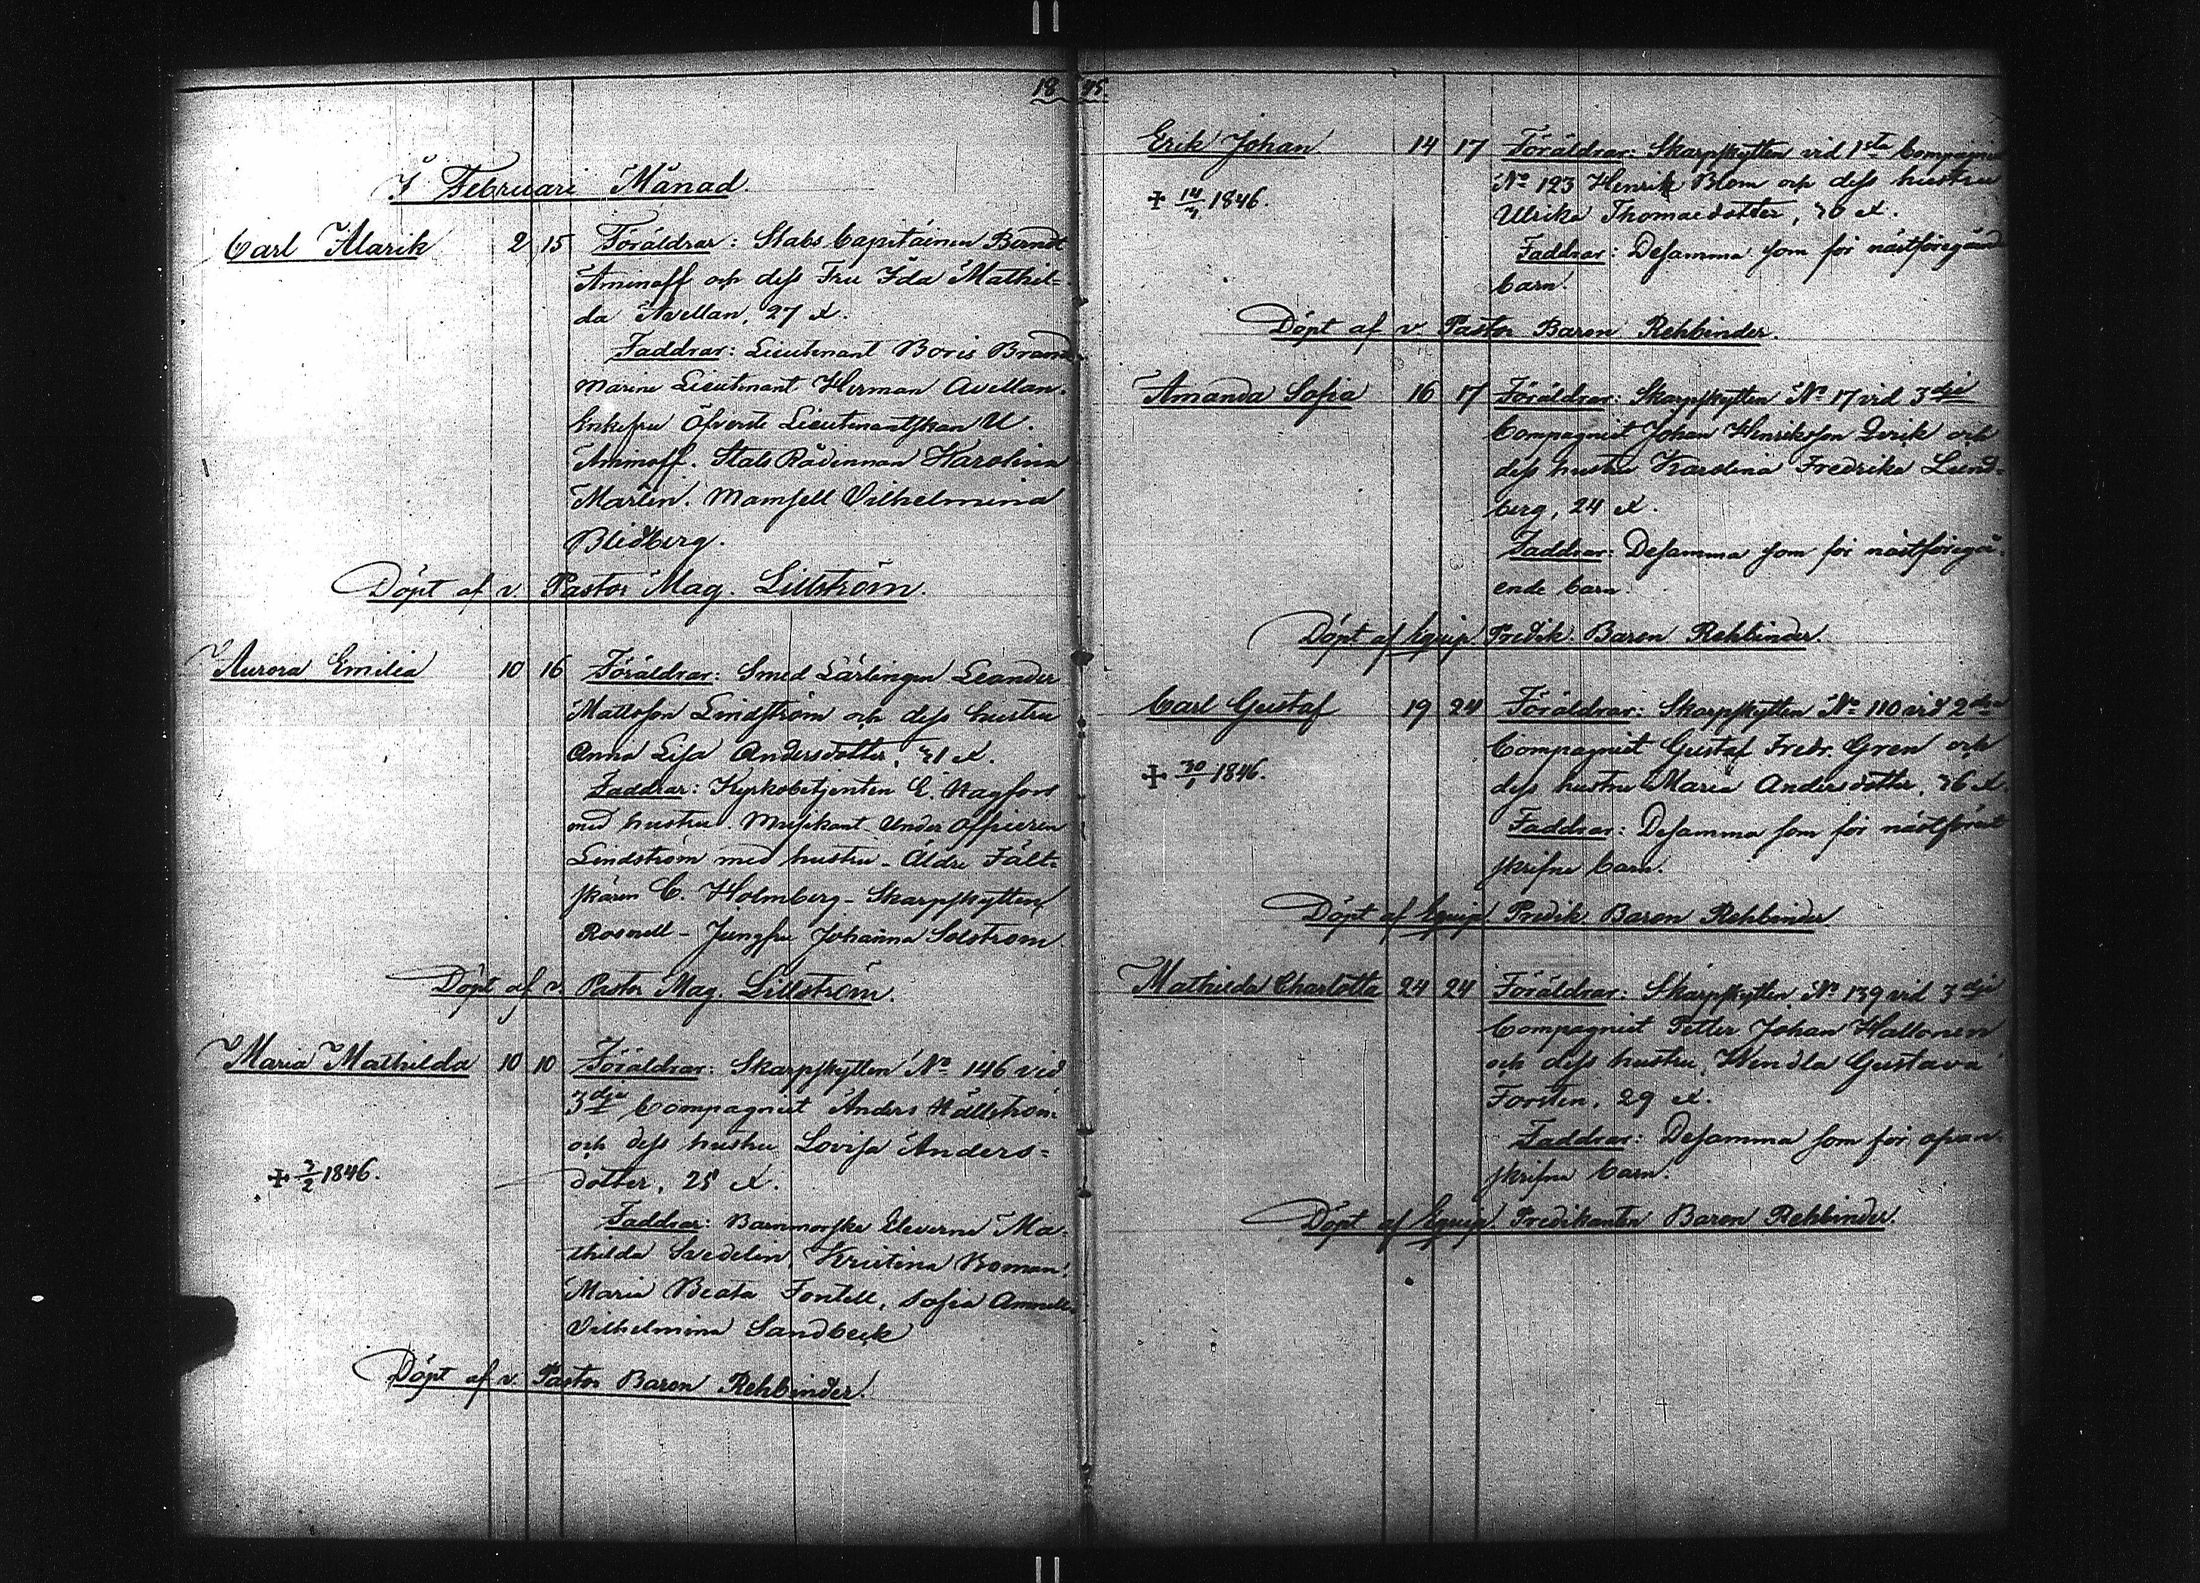 18 45.
I Februari Månad.
Carl Alarik 2 15 Föräldrar: Stabs Capitainen Berndt
Aminoff och dess Fru Ida Mathil-
da Avellan, 27 år.
Faddrar: Lieutenant Boris
Marine Lieutenant Herman Avellan.
Enkefru Öfverste Lieutenantskan U.
Aminoff. Stats Rådinnan Karolina
Martin. Mamsell Vilhelmina
Blidberg.
Döpt af v. Pastor Mag. Lillström.
Aurora Emilia 10 16 Föräldrar: Smed Lärlingen Leander
Mattsson Lindström och dess hustru
Anna Lisa Andersdotter, 31 år.
Faddrar: Kyrkobetjenten E. Hagfors
med hustru. Musikant Under Officeren
Lindström med hustru - Äldre Fält-
skären C. Holmberg - Skarpskytten
Rosnell - Jungfru Johanna Solström
Döpt af v. Pastor Mag. Lillström.
Maria Mathilda 10 10 Föräldrar: Skarpskytten No 146 vid
3dje Compagniet Anders Hällström
och dess hustru Lovisa Anders-
+ 3/2 1846.
dotter, 25 år.
Faddrar: Barnmorske Eleverne Ma-
thilda Svedelin, Kristina Boman,
Maria Beata Fontell, Sofia
Vilhelmina Sandbeck
Döpt af v. Pastor Baron Rehbinder.
Erik Johan 14 17 Föräldrar: Skarpskytten vid 1sta Compagniet
+ 14/3 1846.
No 123 Henrik Blom och dess hustru
Ulrika Thomasdotter, 36 år.
Faddrar: Desamma som för nästföregående
barn.
Döpt af v. Pastor Baron Rehbinder.
Amanda Sofia 16 17 Föräldrar: Skarpskytten No 17 vid 3dje
Compagniet Johan Henriksson Qvick och
dess hustru Karolina Fredrika Lund-
berg, 24 år.
Faddrar: Desamma som för nästföregå-
ende barn.
Döpt af Equip. Predik. Baron Rehbinder.
Carl Gustaf 19 24 Föräldrar: Skarpskytten No 110 vid 2dra
Compagniet Gustaf Fredr. Gren och
+ 30/1 1846.
dess hustru Maria Andersdotter, 36 år.
Faddrar: Desamma som för nästförut
skrifne barn.
Döpt af Equip. Predik. Baron Rehbinder
Mathilda Charlotta 24 24 Föräldrar: Skarpskytten No 139 vid 3dje
Compagniet Petter Johan Hallonen
och dess hustru, Hendla Gustava
Forsten, 29 år.
Faddrar: Desamma som för ofvan-
skrifne barn.
Döpt af Equip. Predikanten Baron Rehbinder.